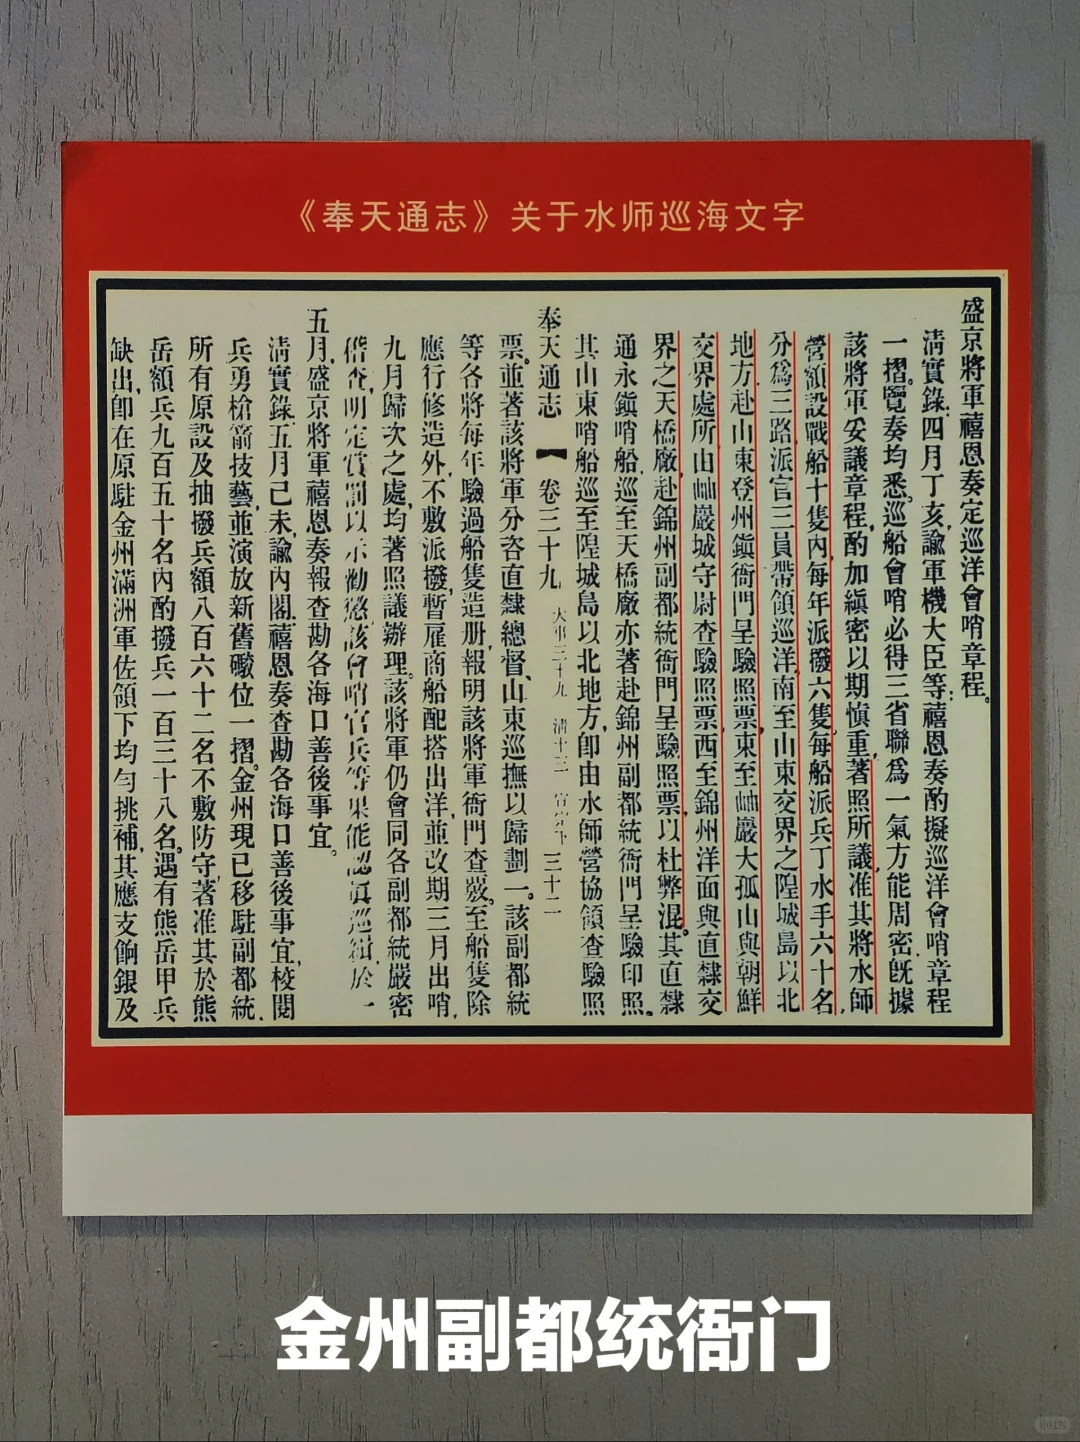 《奉天通志》关于水师巡海文字
盛京將軍禧恩奏定巡洋會哨章程。
淸實錄、四月丁亥、諭軍機大臣等、禧恩奏酌擬巡洋會哨章程
一摺。覽奏均悉。巡船會哨必得三省聯爲一氣方能周密。旣據
該將軍妥議章程、酌加縝密以期愼重、著照所議、准其將水師
營額設戰船十隻內、每年派撥六隻、每船派兵丁水手六十名、
分爲三路、派官三員帶領巡洋、南至山東交界之隍城島以北
地方、赴山東登州鎭衙門呈驗照票、東至岫巖大孤山與朝鮮
交界處所、由岫巖城守尉查驗照票、西至錦州洋面與直隸交
界之天橋廠、赴錦州副都統衙門呈驗照票、以杜弊混。其直隸
通永鎭哨船、巡至天橋廠亦著赴錦州副都統衙門呈驗印照。
其山東哨船巡至隍城島以北地方、卽由水師營協領查驗照
奉天通志 卷三十九 大事三十九 淸十三 宣宗下 三十二
票。並著該將軍分咨直隸總督、山東巡撫以歸劃一。該副都統
等各將每年驗過船隻造册、報明該將軍衙門查覈。至船隻除
應行修造外、不敷派撥、暫雇商船配搭出洋、並改期三月出哨、
九月歸次之處、均著照議辦理。該將軍仍會同各副都統嚴密
偕查、明定賞罰以示勸懲、該會哨官兵等果能認眞巡緝、於一
五月、盛京將軍禧恩奏報查勘各海口善後事宜。
淸實錄、五月己未、諭內閣、禧恩奏查勘各海口善後事宜、校閱
兵勇槍箭技藝、並演放新舊礮位一摺。金州現已移駐副都統、
所有原設及抽撥兵額八百六十二名不敷防守、著准其於熊
岳額兵九百五十名內酌撥兵一百三十八名。遇有熊岳甲兵
缺出、卽在原駐金州滿洲軍佐領下均勻挑補、其應支餉銀及
金州副都统衙门